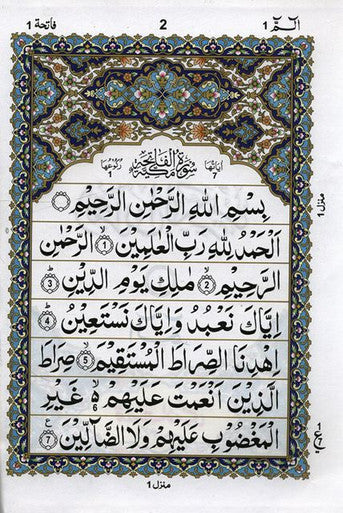 الٓمّٓ ١ 2 فاتحة 1
اٰیاتها ۷ سُوْرَةُ الْفَاتِحَةِ مَكِّیَّةٌ رکوعها ۱
بِسْمِ اللهِ الرَّحْمٰنِ الرَّحِيْمِ
اَلْحَمْدُ لِلّٰهِ رَبِّ الْعٰلَمِيْنَ ۙ1 الرَّحْمٰنِ
الرَّحِيْمِ ۙ2 مٰلِكِ يَوْمِ الدِّيْنِ ؕ3
اِيَّاكَ نَعْبُدُ وَاِيَّاكَ نَسْتَعِيْنُ ؕ4
اِهْدِنَا الصِّرَاطَ الْمُسْتَقِيْمَ ۙ5 صِرَاطَ
الَّذِيْنَ اَنْعَمْتَ عَلَيْهِمْ ۙ6 غَيْرِ
الْمَغْضُوْبِ عَلَيْهِمْ وَلَا الضَّآلِّيْنَ ع7
منزل ١
ع
منزل 1